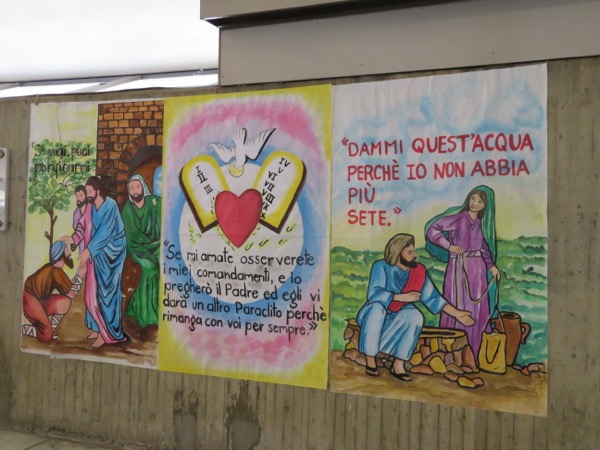 Se vuoi, puoi
purificarmi
I
II
III
IV
V
VI
VII
VIII
IX
X
"Se mi amate osserverete
i miei comandamenti, e io
pregherò il Padre ed egli vi
darà un altro Paraclito perchè
rimanga con voi per sempre."
"DAMMI QUEST'ACQUA
PERCHÈ IO NON ABBIA
PIÙ
SETE."